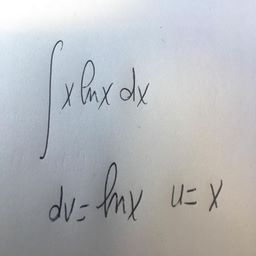 ∫ x lnx dx
dv = lnx u = x